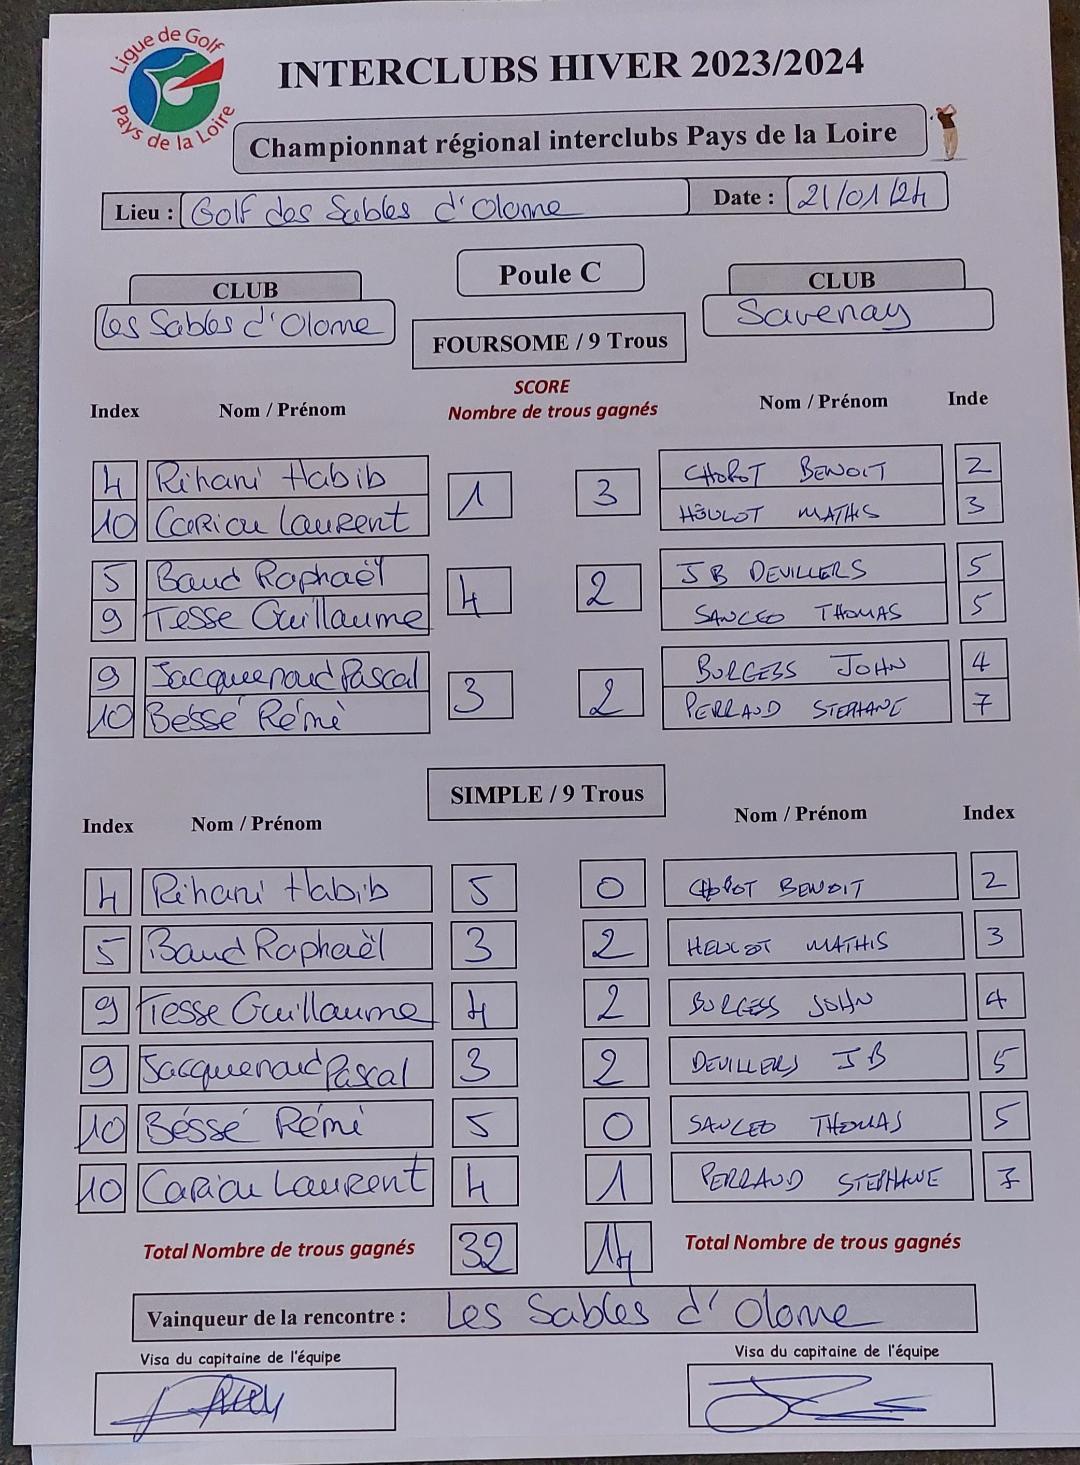 Ligue de Golf
Pays de la Loire
INTERCLUBS HIVER 2023/2024
Championnat régional interclubs Pays de la Loire
Lieu : Golf des Sables d'Olonne Date : 21/01/24
Poule C
CLUB CLUB
Les Sables d'Olonne Savenay
FOURSOME / 9 Trous
SCORE
Index Nom / Prénom Nombre de trous gagnés Nom / Prénom Inde
4 Rihani Habib 1 3 CHOPOT BENOIT 2
10 Cariou Laurent HEULOT MATHIS 3
5 Baud Raphaël 4 2 JB DEVILLERS 5
9 Tesse Guillaume SANCEO THOMAS 5
9 Jacquenoud Pascal 3 2 BURGESS JOHN 4
10 Béssé Rémi PERRAUD STEPHANE 7
SIMPLE / 9 Trous
Index Nom / Prénom Nom / Prénom Index
4 Rihani Habib 5 0 CHOPOT BENOIT 2
5 Baud Raphaël 3 2 HEULOT MATHIS 3
9 Tesse Guillaume 4 2 BURGESS JOHN 4
9 Jacquenoud Pascal 3 2 DEVILLERS JB 5
10 Béssé Rémi 5 0 SANCEO THOMAS 5
10 Cariou Laurent 4 1 PERRAUD STEPHANE 7
Total Nombre de trous gagnés 32 14 Total Nombre de trous gagnés
Vainqueur de la rencontre : Les Sables d'Olonne
Visa du capitaine de l'équipe Visa du capitaine de l'équipe